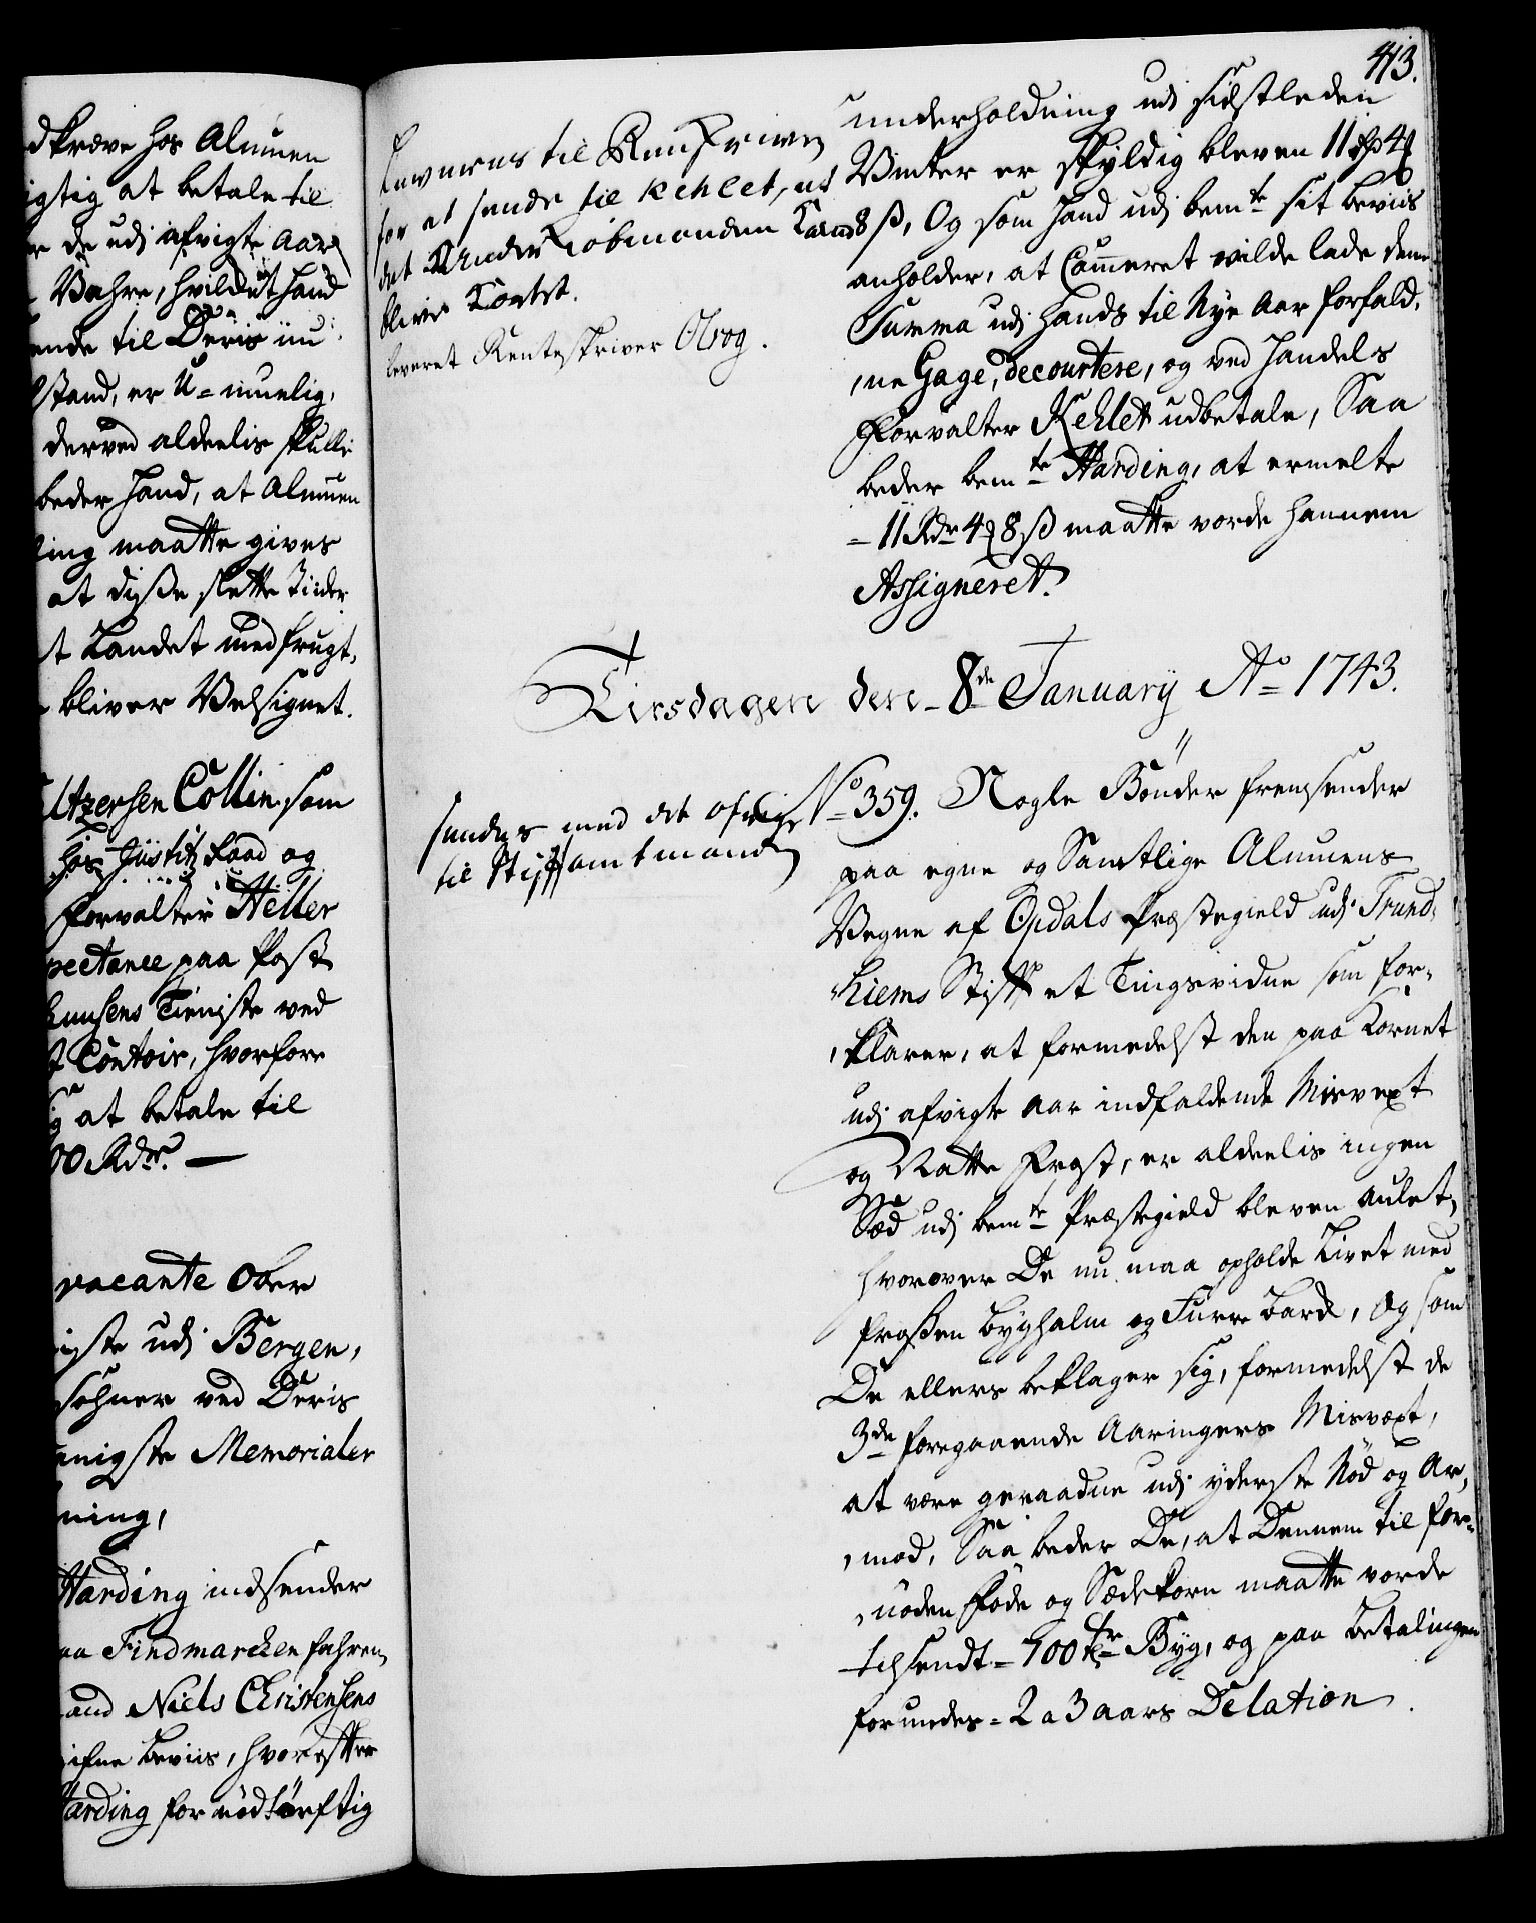 dkræve hos Almuen
igtig at betale til
de udi afvigte Aar
Vahre, hvilcket hand
ende til Deris nu
stand, er U=muelig,
derved aldeelis skulle
beder hand, at Almuen
ling maatte gives
at disse slette Tiider
t Landet med frugt,
bliver Velsignet.
Collin som
hos Justitz Raad og
Forvalter Heller
pectance paa Post
Tieniste ved
t Contoir, hvorfore
at betale til
00 Rdr. —
vacante Ober
iste udi Bergen,
ved Deris
nigste Memorialer
ning,
Harding indsender
aa Findmarcken fahren,
and Niels Christensens
ifne beviis, hvorefter
Harding for nødtørftig
413.
Leveres til Renteskriver
for at sende til Kehlet, at
det Under Kiøbmanden
bliver kortet.
leveret Renteskriver Olrog.
underholdning udi sidstleden
Vinter er skyldig bleven 11 Rdr 4
8 ß, Og som hand udi bemte sit beviis
anholder, at Cammeret vilde lade denne
Summa udi hands til Nye Aar forfald,
,ne Gage, decourtere, og ved Handels
Forvalter Kehlet udbetale, Saa
beder bemte Harding, at ermelte
= 11 Rdr 4 8 ß maatte vorde hannem
Assigneret.
Tirsdagen den 8de January Ao 1743.
sendes med det
til Stiftamtmand
No 359. Nogle Bønder fremsender
paa egne og Samtlige Almuens
Vegne af Opdals Præstegield udi Trund,
,hiems Stift et Tingsvidne som for,
,klarer, at formedelst den paa Kornet
udi afvigte Aar indfaldende Misvext
og Natte Frost, er aldeelis ingen
Sæd udi bemte Præstegield bleven aulet,
hvorover De nu maa opholde Livet med
frossen byghalm og Furre barck, Og som
De ellers beklager sig, formedelst de
3de foregaaende Aaringers Misvæxt,
at være geraadne udi yderste Nød og Ar,
,mod, Saa beder De, at Dennem til for,
,nøden Føde og Sædekorn maatte vorde
tilsendt = 700 tr Byg, og paa betalingen
forundes = 2 a 3 aars Delation.